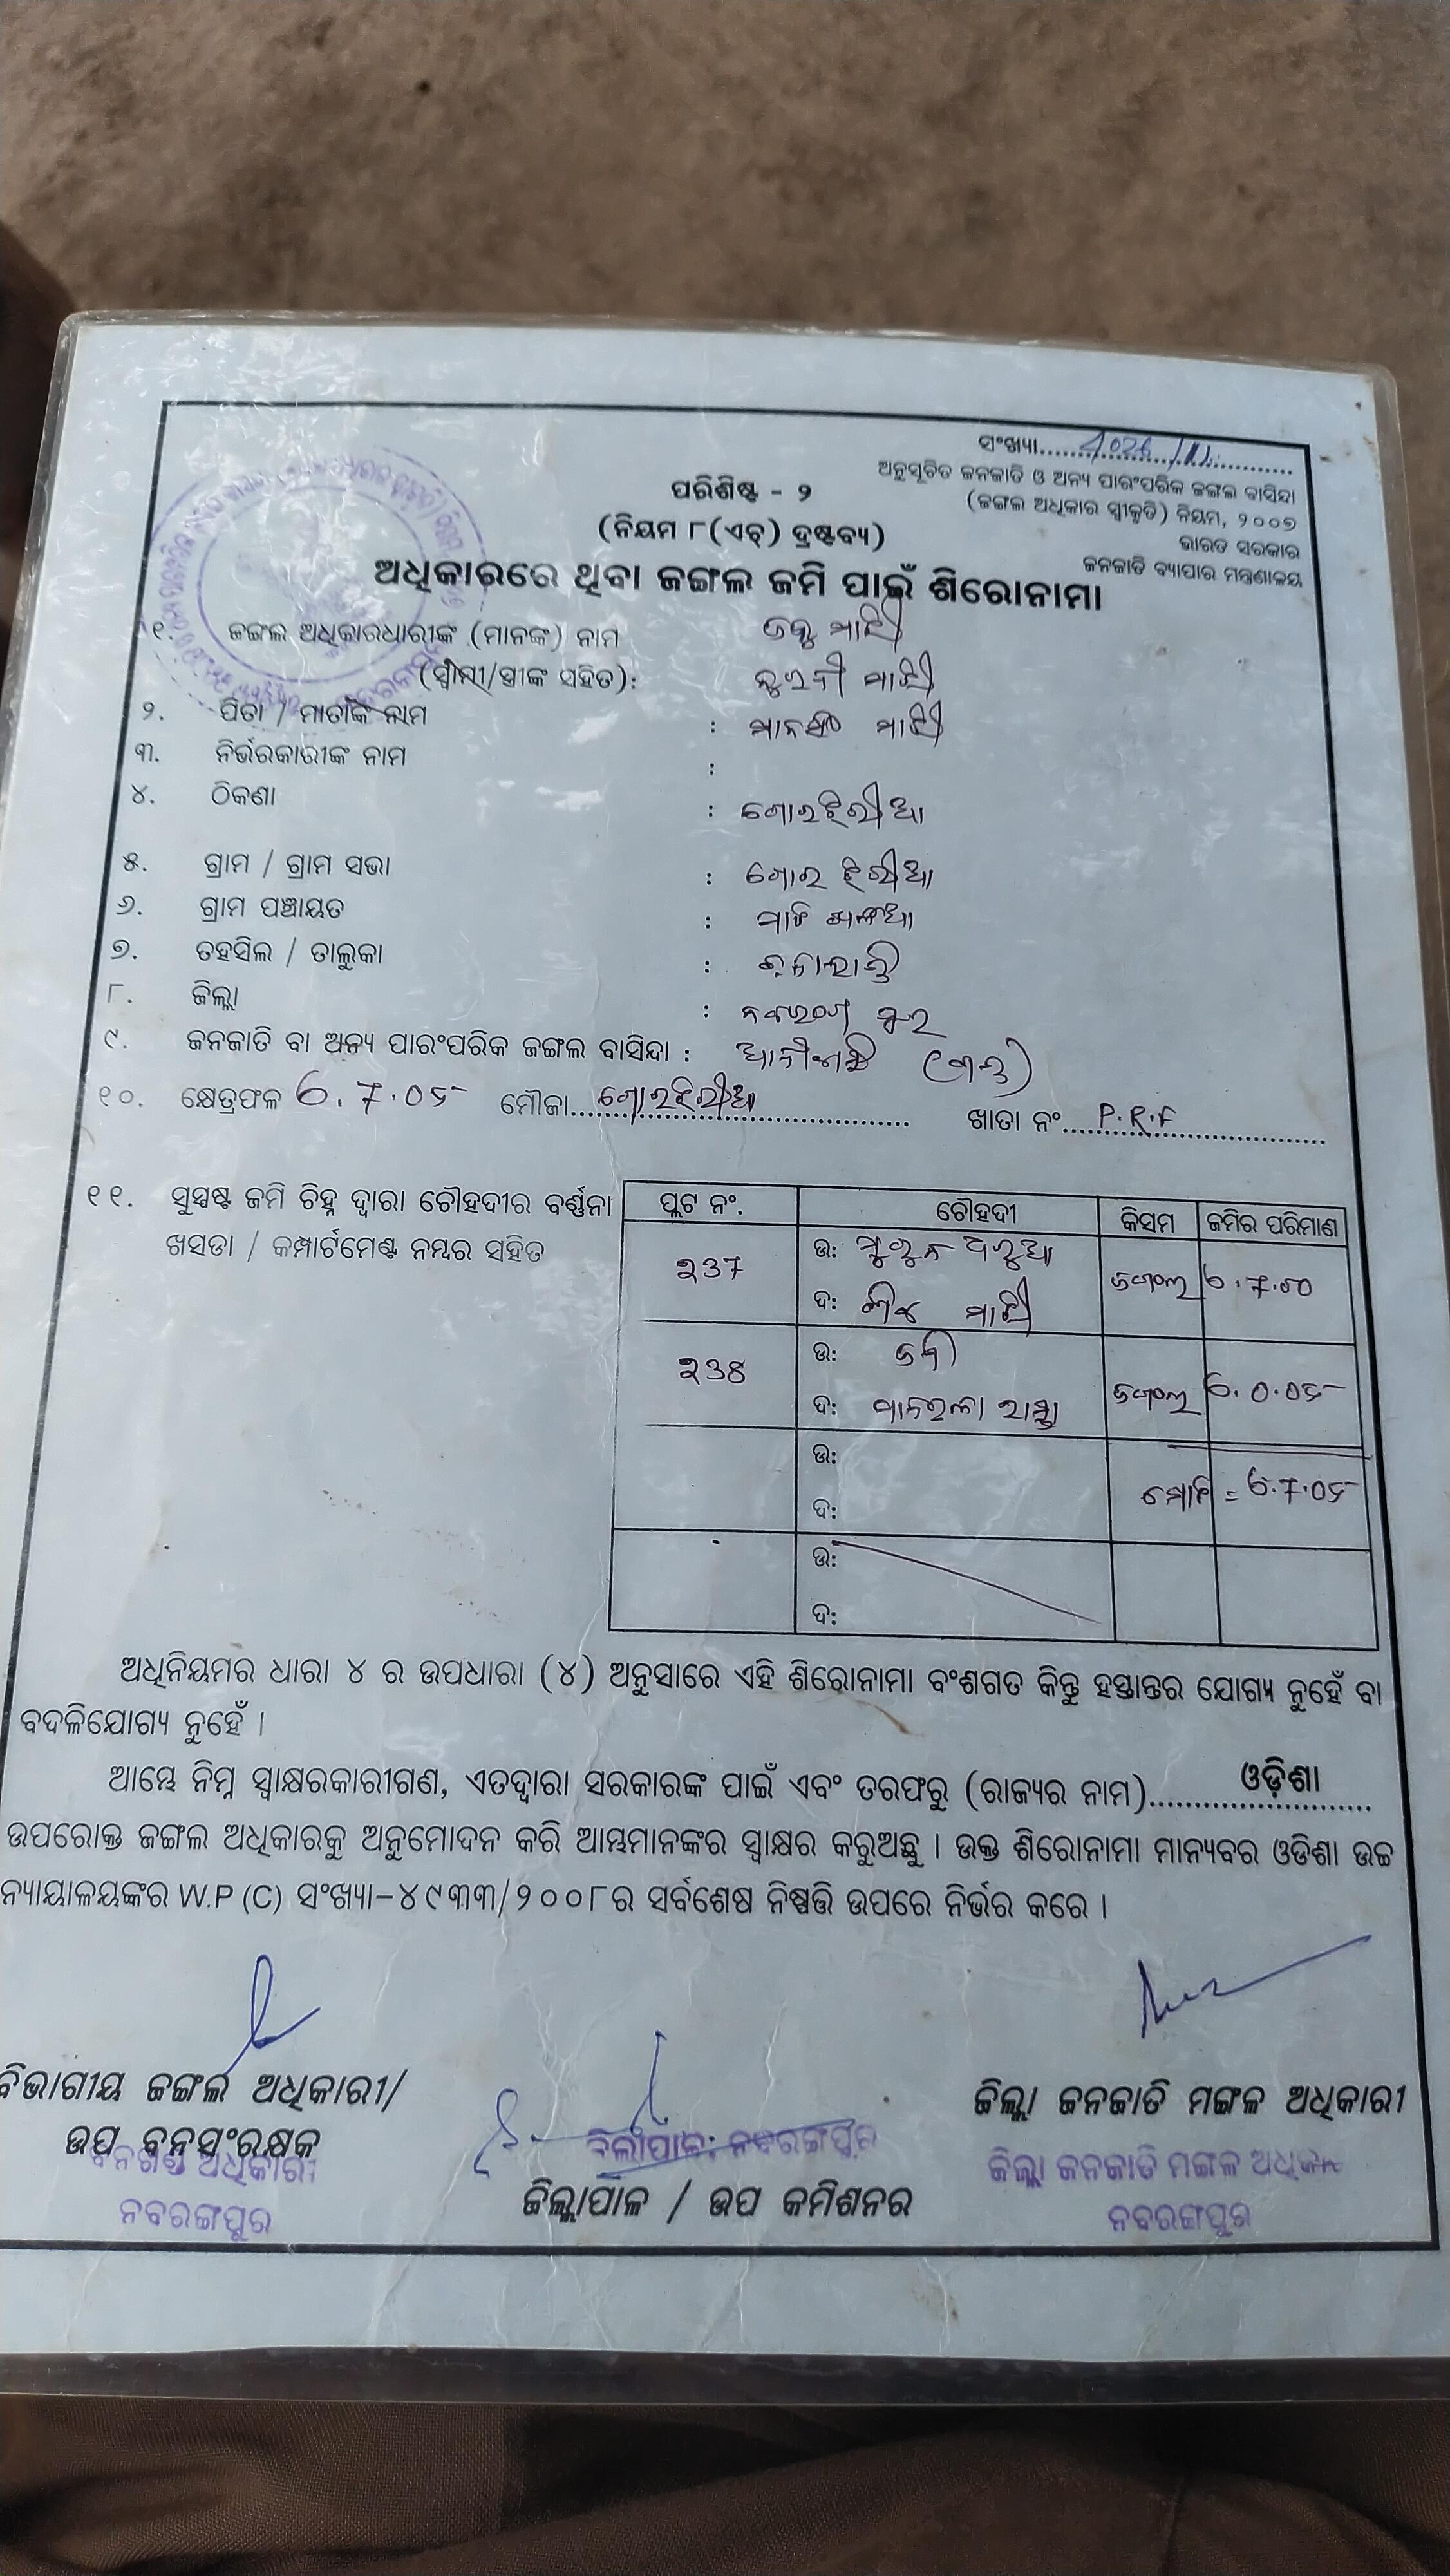 ସଂଖ୍ୟା
ଅନୁସୂଚିତ ଜନଜାତି ଓ ଅନ୍ୟ ପାରଂପରିକ ଜଙ୍ଗଲ ବାସିନ୍ଦା
(ଜଙ୍ଗଲ ଅଧିକାର ସ୍ୱୀକୃତି) ନିୟମ, ୨୦୦୭
ଭାରତ ସରକାର
ଜନଜାତି ବ୍ୟାପାର ମନ୍ତ୍ରଣାଳୟ
ପରିଶିଷ୍ଟ - ୨
(ନିୟମ ୮(ଏଚ୍) ଦ୍ରଷ୍ଟବ୍ୟ)
ଅଧିକାରରେ ଥିବା ଜଙ୍ଗଲ ଜମି ପାଇଁ ଶିରୋନାମା
୧. ଜଙ୍ଗଲ ଅଧିକାରଧାରୀଙ୍କ (ମାନଙ୍କ) ନାମ ମାଝୀ
(ସ୍ୱାମୀ/ସ୍ତ୍ରୀଙ୍କ ସହିତ): ମାଝୀ
୨. ପିତା / ମାତାଙ୍କ ନାମ : ମାନସିଂ ମାଝୀ
୩. ନିର୍ଭରକାରୀଙ୍କ ନାମ :
୪. ଠିକଣା : ଘୋରଝିରୀଆ
୫. ଗ୍ରାମ / ଗ୍ରାମ ସଭା : ଘୋର ଝିରୀଆ
୬. ଗ୍ରାମ ପଞ୍ଚାୟତ :
୭. ତହସିଲ / ତାଲୁକା :
୮. ଜିଲ୍ଲା : ନବରଂଗ ପୁର
୯. ଜନଜାତି ବା ଅନ୍ୟ ପାରଂପରିକ ଜଙ୍ଗଲ ବାସିନ୍ଦା : (ଗଣ୍ଡ)
୧୦. କ୍ଷେତ୍ରଫଳ 6.7.05 ମୌଜା ଘୋରଝିରୀଆ ଖାତା ନଂ P.R.F
୧୧. ସୁସ୍ପଷ୍ଟ ଜମି ଚିହ୍ନ ଦ୍ୱାରା ଚୌହଦୀର ବର୍ଣ୍ଣନା
ଖସଡା / କମ୍ପାର୍ଟମେଣ୍ଟ ନମ୍ବର ସହିତ
ପ୍ଲଟ ନଂ. ଚୌହଦୀ କିସମ ଜମିର ପରିମାଣ
237 ଉ: ଜଙ୍ଗଲ 6.7.00
ଦ: ମାଝୀ
238 ଉ: ଜଙ୍ଗଲ 6.0.05
ଦ: ରାସ୍ତା
ଉ:
ଦ: ମୋଟ = 6.7.05
ଉ:
ଦ:
ଅଧିନିୟମର ଧାରା ୪ ର ଉପଧାରା (୪) ଅନୁସାରେ ଏହି ଶିରୋନାମା ବଂଶଗତ କିନ୍ତୁ ହସ୍ତାନ୍ତର ଯୋଗ୍ୟ ନୁହେଁ ବା
ବଦଳିଯୋଗ୍ୟ ନୁହେଁ ।
ଆମ୍ଭେ ନିମ୍ନ ସ୍ୱାକ୍ଷରକାରୀଗଣ, ଏତଦ୍ୱାରା ସରକାରଙ୍କ ପାଇଁ ଏବଂ ତରଫରୁ (ରାଜ୍ୟର ନାମ) ଓଡ଼ିଶା
ଉପରୋକ୍ତ ଜଙ୍ଗଲ ଅଧିକାରକୁ ଅନୁମୋଦନ କରି ଆମ୍ଭମାନଙ୍କର ସ୍ୱାକ୍ଷର କରୁଅଛୁ । ଉକ୍ତ ଶିରୋନାମା ମାନ୍ୟବର ଓଡିଶା ଉଚ୍ଚ
ନ୍ୟାୟାଳୟଙ୍କର W.P (C) ସଂଖ୍ୟା-୪୯୩୩/୨୦୦୮ର ସର୍ବଶେଷ ନିଷ୍ପତ୍ତି ଉପରେ ନିର୍ଭର କରେ ।
ବିଭାଗୀୟ ଜଙ୍ଗଲ ଅଧିକାରୀ/
ଉପ ବନସଂରକ୍ଷକ
ବନଖଣ୍ଡ ଅଧିକାରୀ
ନବରଙ୍ଗପୁର
ଜିଲାପାଳ: ନବରଙ୍ଗପୁର
ଜିଲ୍ଲାପାଳ / ଉପ କମିଶନର
ଜିଲ୍ଲା ଜନଜାତି ମଙ୍ଗଳ ଅଧିକାରୀ
ଜିଲ୍ଲା ଜନଜାତି ମଙ୍ଗଳ ଅଧିକାରୀ
ନବରଙ୍ଗପୁର